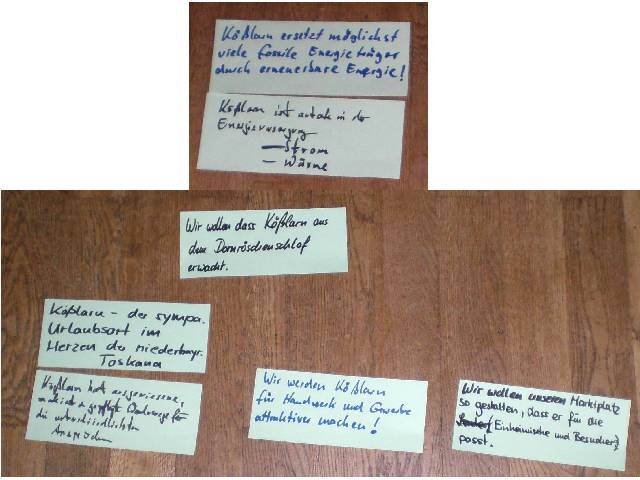 Kößlarn ersetzt möglichst
viele fossile Energieträger
durch erneuerbare Energie!
Kößlarn ist autark in der
Energieversorgung
— Strom
— Wärme
Wir wollen dass Kößlarn aus
dem Dornröschenschlaf
erwacht.
Kößlarn - der sympa.
Urlaubsort im
Herzen der niederbayr.
Toskana
Kößlarn hat ausgewiesene,
für
die unterschiedlichsten
Ansprüche
Wir werden Kößlarn
für Handwerk und Gewerbe
attraktiver machen!
Wir wollen unseren Marktplatz
so gestalten, dass er für die
Einheimische und Besucher
passt.